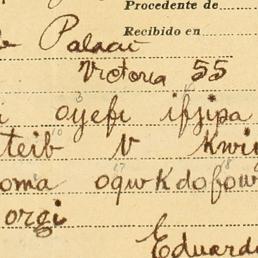 Procedente de
Recibido en
Palacu
Victoria 55
oyefi ifjipa
teib v kwi
oma oqwkdofow
orgi
Eduard